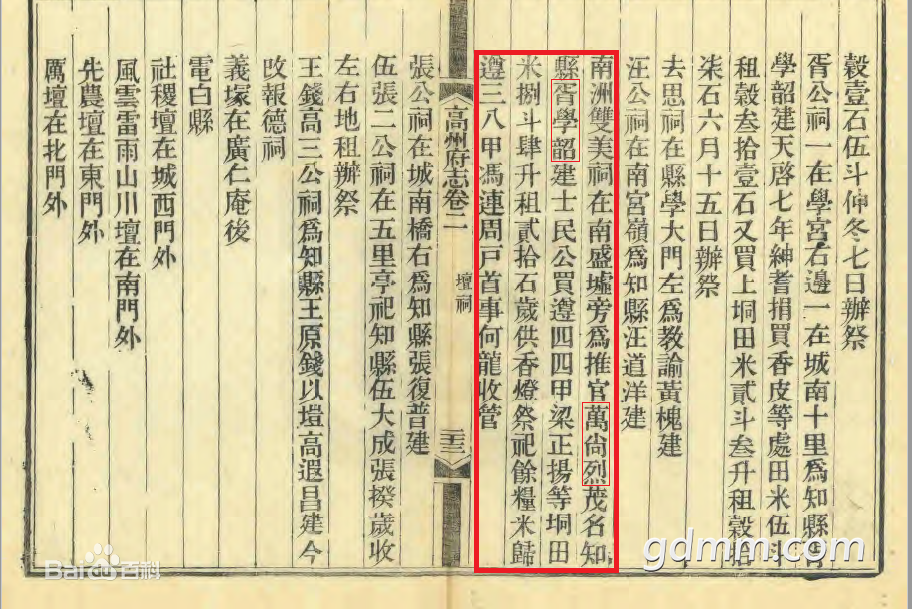 穀壹石伍斗仲冬七日辦祭
胥公祠一在學宮右邊一在城南十里爲知縣胥
學韶建天啓七年紳耆捐買香皮等處田米伍斗
租穀叁拾壹石又買上垌田米貳斗叁升租穀
柒石六月十五日辦祭
去思祠在縣學大門左爲教諭黃槐建
汪公祠在南宮嶺爲知縣汪道洋建
南洲雙美祠在南盛墟旁爲推官萬尙烈茂名知
縣胥學韶建士民公買遵四四甲梁正揚等垌田
米捌斗肆升租貳拾石歲供香燈祭祀餘糧米歸
遵三八甲馮連周戸首事何龍收管
高州府志卷二
壇祠
三三
張公祠在城南橋右爲知縣張復普建
伍張二公祠在五里亭祀知縣伍大成張揆歲收
左右地租辦祭
王錢高三公祠爲知縣王原錢以塏高遐昌建今
改報德祠
義塚在廣仁庵後
電白縣
社稷壇在城西門外
風雲雷雨山川壇在南門外
先農壇在東門外
厲壇在北門外
gdmm.com
Bai百科